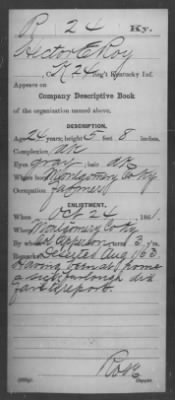 R 24 Ky.
Hector E Roy
, Co. K, 24 Reg't Kentucky Inf.
Appears on
Company Descriptive Book
of the organization named above.
DESCRIPTION.
Age 24 years; height 5 feet 8 inches.
Complexion dk
Eyes gray; hair dk
Where born Montgomery Co Ky
Occupation farmer
ENLISTMENT.
When Oct 24, 1861.
Where Montgomery Co Ky
By whom Col Apperson; term 3 y'rs.
Remarks: Deserted Aug 1863.
Having been at home
a sick furlough did
fail to report.